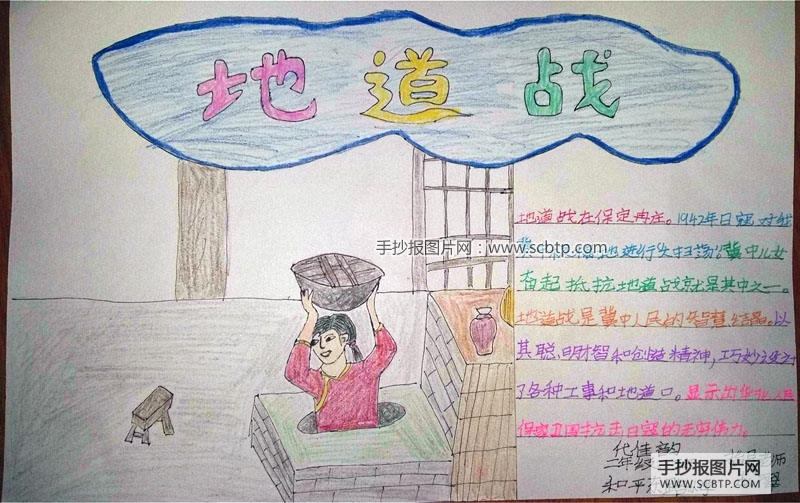 地道战
地道战在保定冉庄。1942年日寇对我
冀中 地进行大扫荡。冀中儿女
手抄报图片网:www.scbtp.com
奋起抵抗地道战就是其中之一。
地道战是冀中人民的智慧结晶。以
其聪明才智和创造精神,巧妙 计
了各种工事和地道口。显示出华北人民
保家卫国抗击日寇的无穷伟力。
代佳
二年级
和平
师
手抄报图片网
WWW.SCBTP.COM